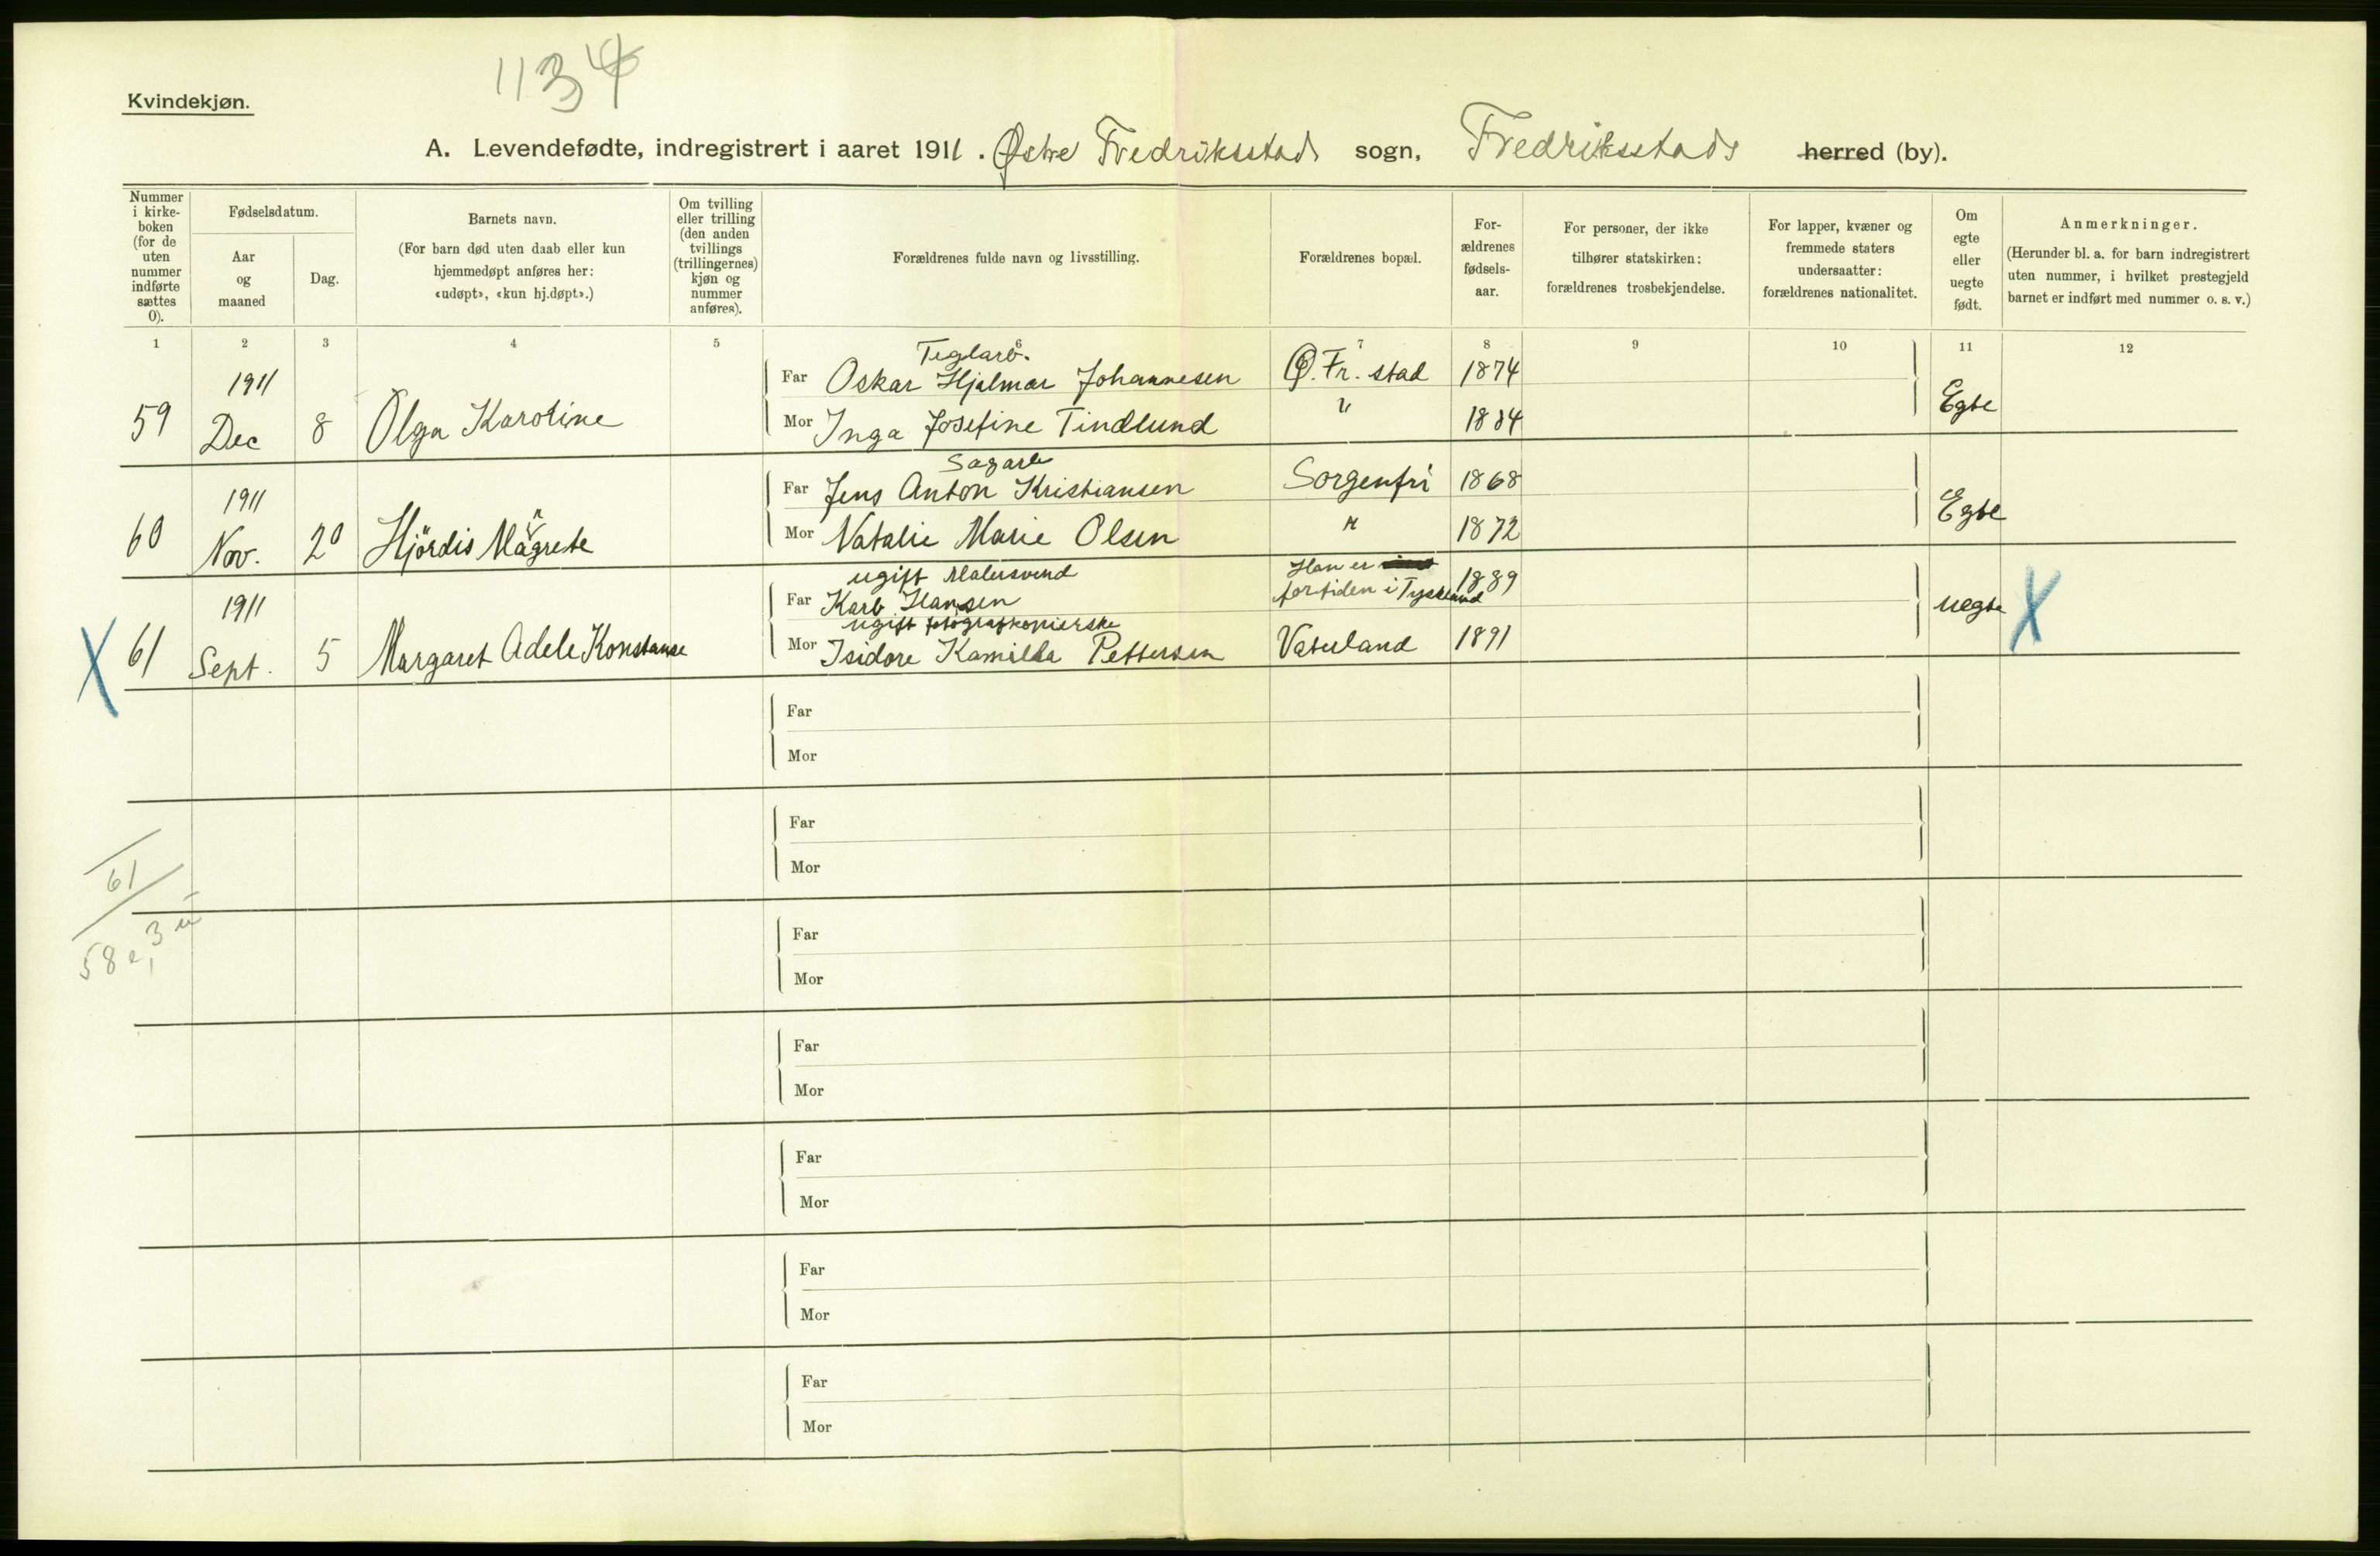 1134
Kvindekjøn.
A. Levendefødte, indregistrert i aaret 1911. Østre Fredriksstad sogn, Fredriksstads herred (by).
Nummer i kirke-boken (for de uten nummer indførte sættes 0).
Fødselsdatum.
Aar og maaned
Dag.
Barnets navn.
(For barn død uten daab eller kun hjemmedøpt anføres her: «udøpt», «kun hj.døpt».)
Om tvilling eller trilling (den anden tvillings (trillingernes) kjøn og nummer anføres).
Forældrenes fulde navn og livsstilling.
Forældrenes bopæl.
For-ældrenes fødsels-aar.
For personer, der ikke tilhører statskirken: forældrenes trosbekjendelse.
For lapper, kvæner og fremmede staters undersaatter: forældrenes nationalitet.
Om egte eller uegte født.
Anmerkninger.
(Herunder bl. a. for barn indregistrert uten nummer, i hvilket prestegjeld barnet er indført med nummer o. s. v.)
1 2 3 4 5 6 7 8 9 10 11 12
Teglarb.
1911 Far Oskar Hjalmar Johannesen Ø. Fr. stad 1874
59 Dec 8 Olga Karoline Mor Inga Josefine Tindlund " 1884 Egte
Sagarb
1911 Far Jens Anton Kristiansen Sorgenfri 1868
60 Nov. 20 Hjördis Margrete Mor Natalie Marie Olsen " 1872 Egte
ugift Malersvend Han er
1911 Far Karl Hansen fortiden i Tyskland 1889
ugift fotografkopierske
X 61 Sept. 5 Margaret Adele Konstanse Mor Isidore Kamilla Pettersen Vaterland 1891 uegte X
Far
Mor
Far
Mor
61
58 e, 3 u
Far
Mor
Far
Mor
Far
Mor
Far
Mor
Far
Mor